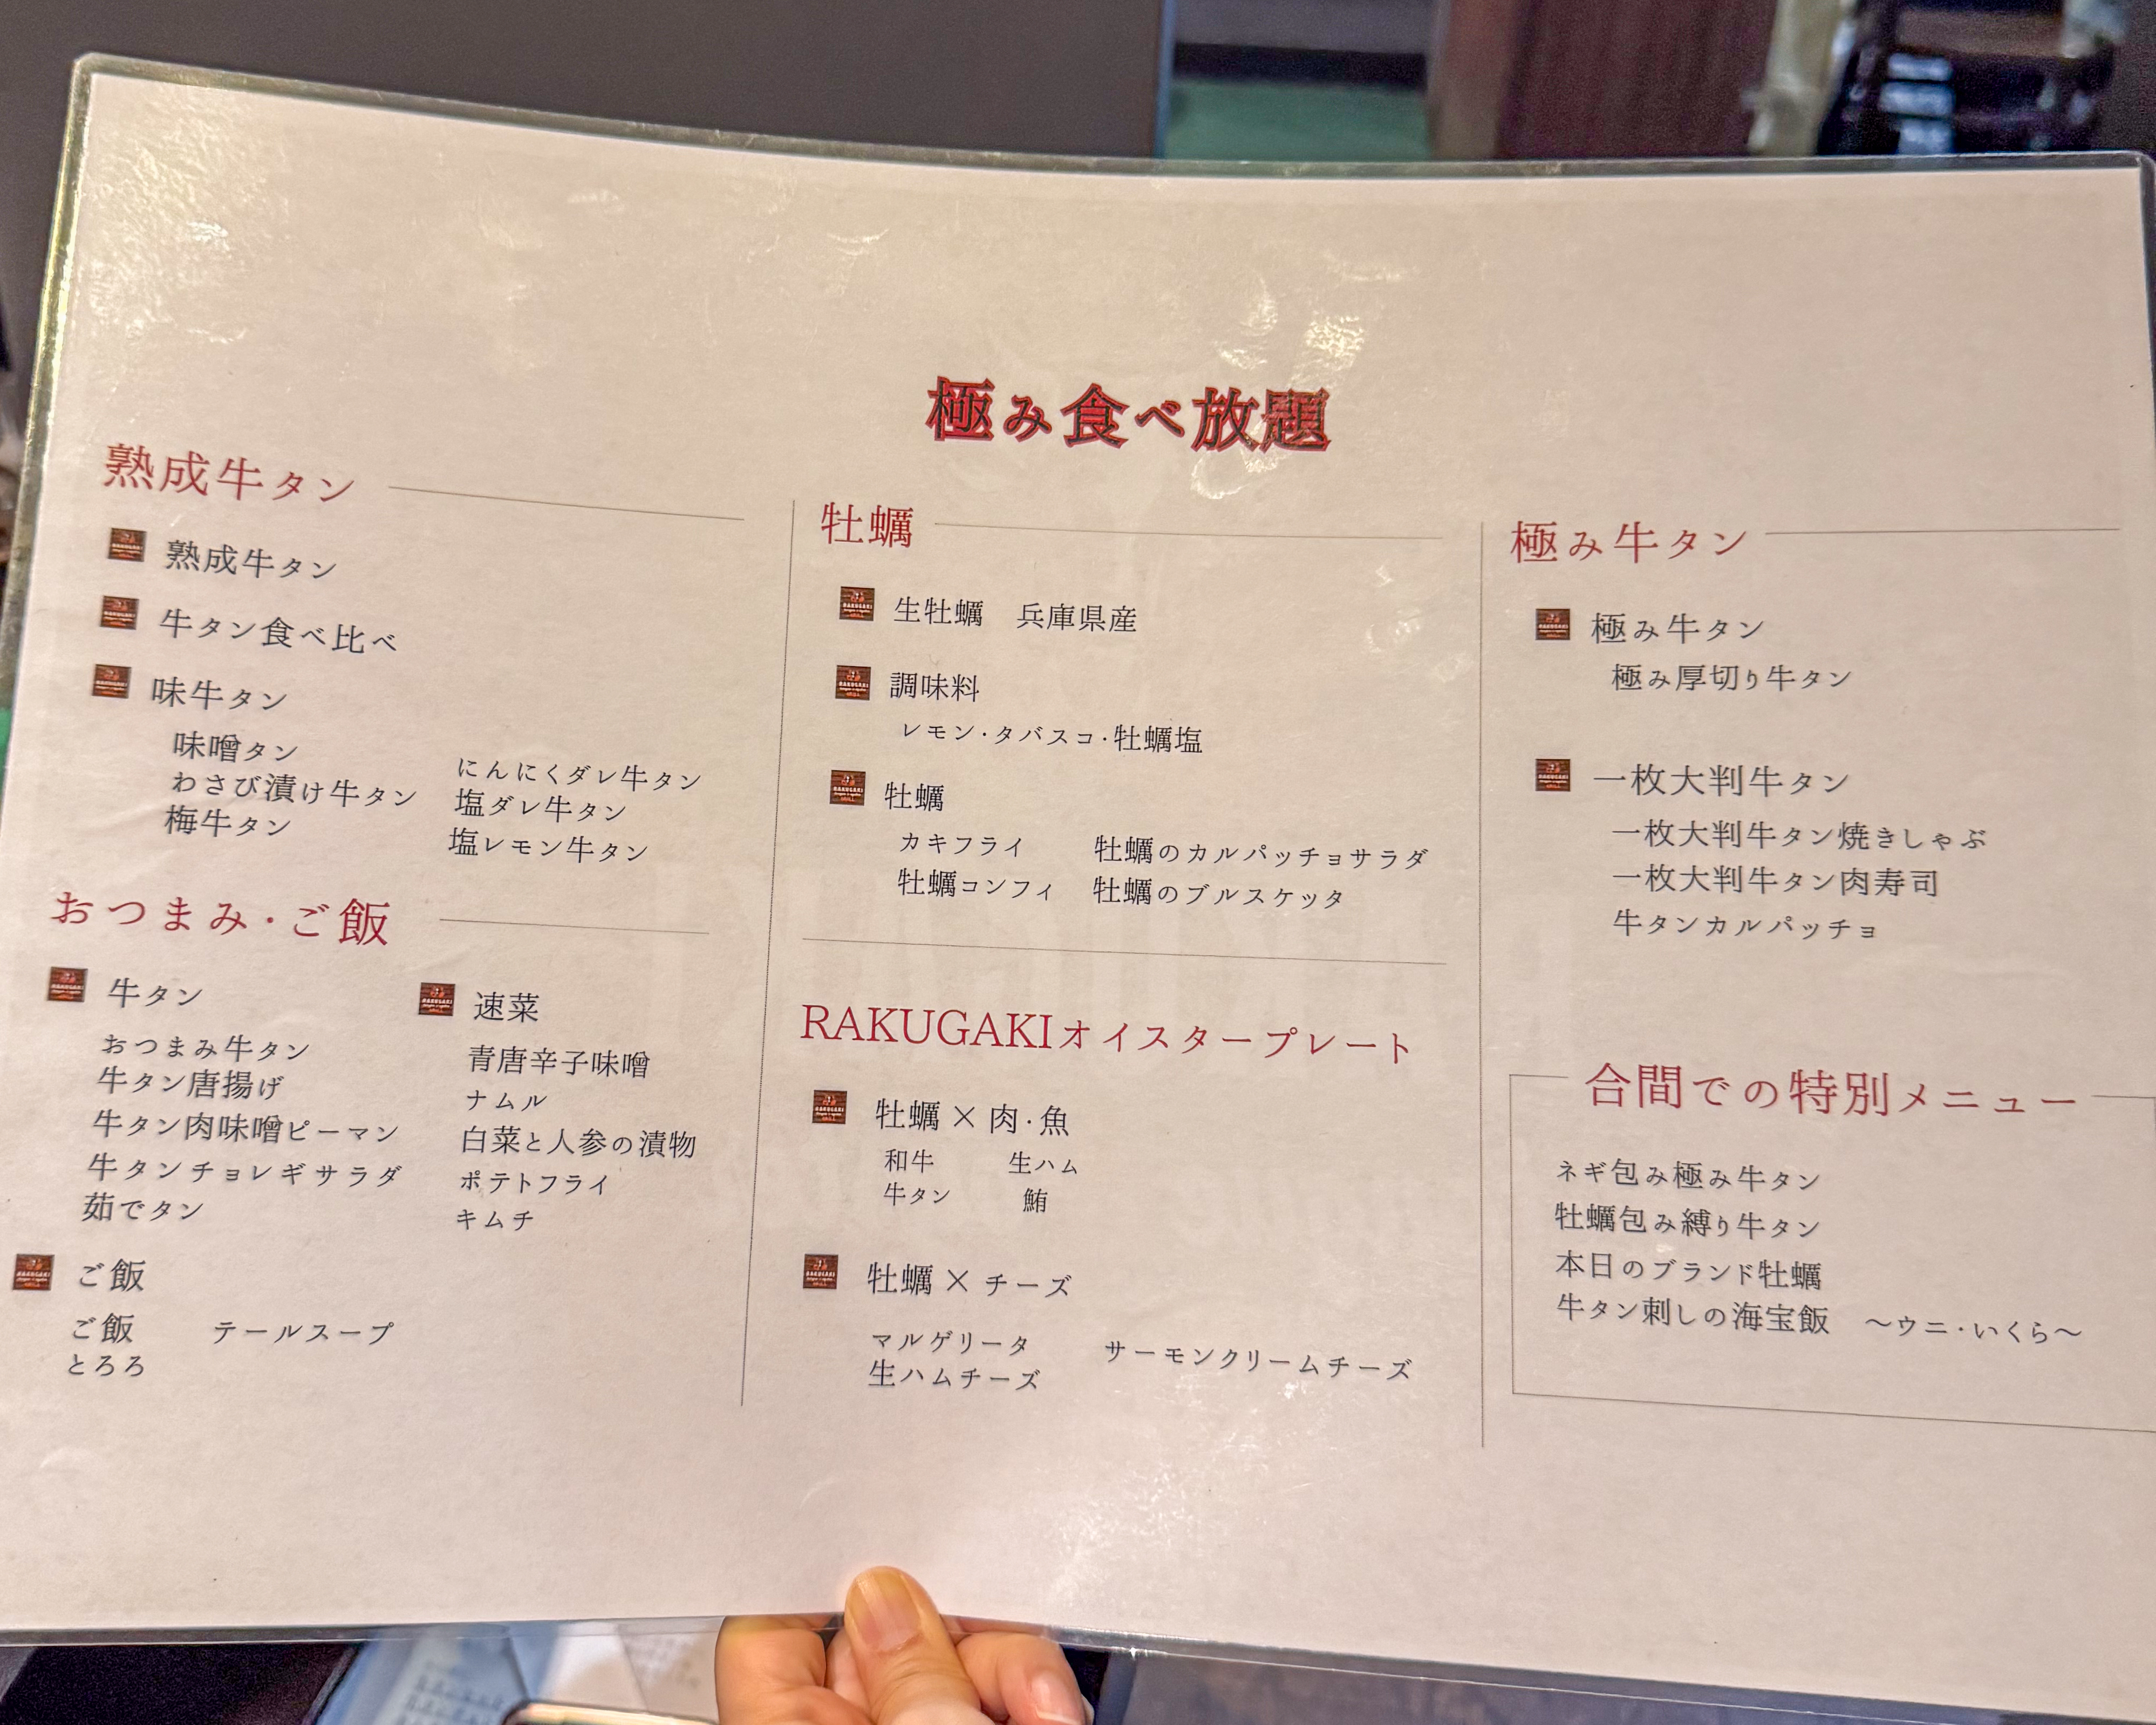 極み食べ放題
熟成牛タン
熟成牛タン
牛タン食べ比べ
味牛タン
味噌タン
わさび漬け牛タン
梅牛タン
にんにくダレ牛タン
塩ダレ牛タン
塩レモン牛タン
おつまみ・ご飯
牛タン
おつまみ牛タン
牛タン唐揚げ
牛タン肉味噌ピーマン
牛タンチョレギサラダ
茹でタン
速菜
青唐辛子味噌
ナムル
白菜と人参の漬物
ポテトフライ
キムチ
ご飯
ご飯
とろろ
テールスープ
牡蠣
生牡蠣 兵庫県産
調味料
レモン・タバスコ・牡蠣塩
牡蠣
カキフライ
牡蠣コンフィ
牡蠣のカルパッチョサラダ
牡蠣のブルスケッタ
RAKUGAKIオイスタープレート
牡蠣×肉・魚
和牛
牛タン
生ハム
鮪
牡蠣×チーズ
マルゲリータ
生ハムチーズ
サーモンクリームチーズ
極み牛タン
極み牛タン
極み厚切り牛タン
一枚大判牛タン
一枚大判牛タン焼きしゃぶ
一枚大判牛タン肉寿司
牛タンカルパッチョ
合間での特別メニュー
ネギ包み極み牛タン
牡蠣包み縛り牛タン
本日のブランド牡蠣
牛タン刺しの海宝飯 〜ウニ・いくら〜